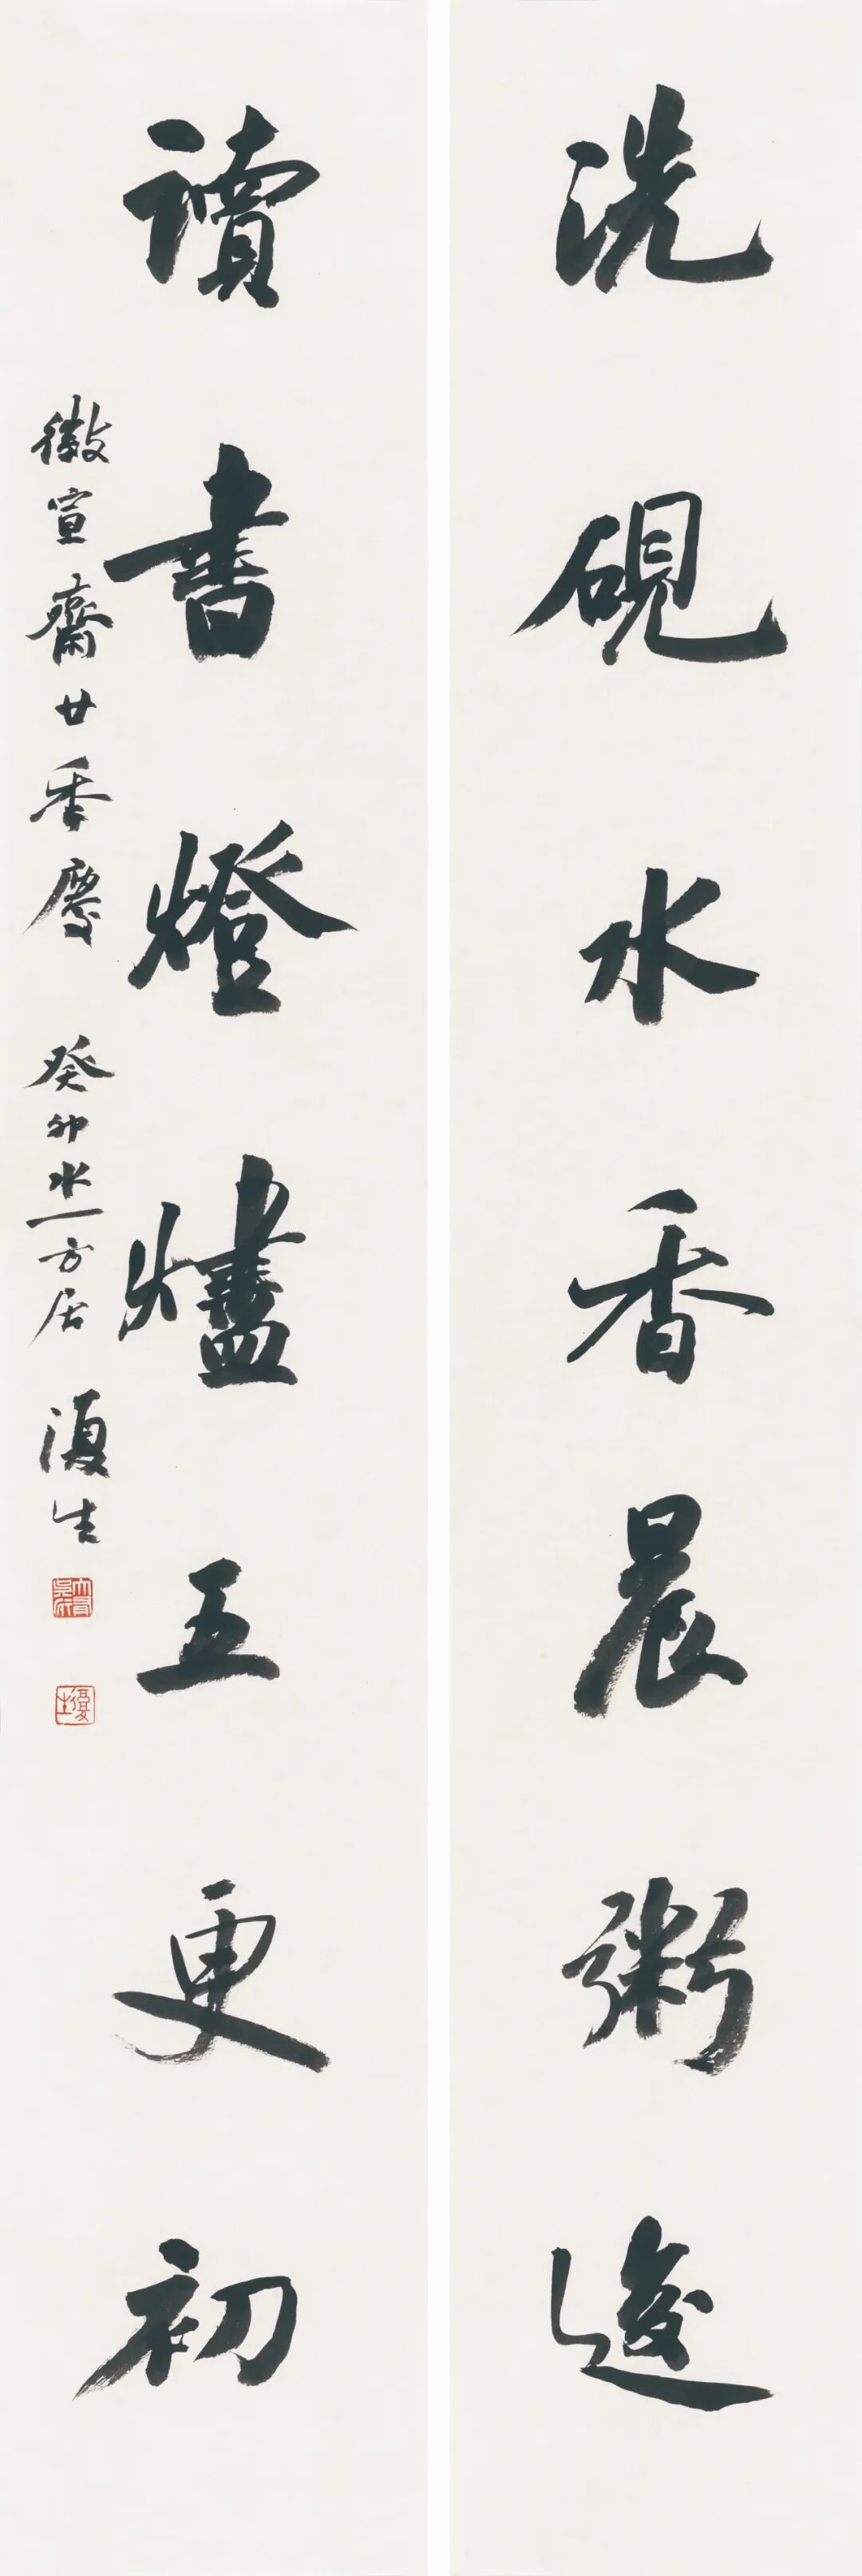 洗硯水香晨粥後
讀書燈燼五更初
徽宣齋廿秊慶 癸卯水一方居 復生
復生